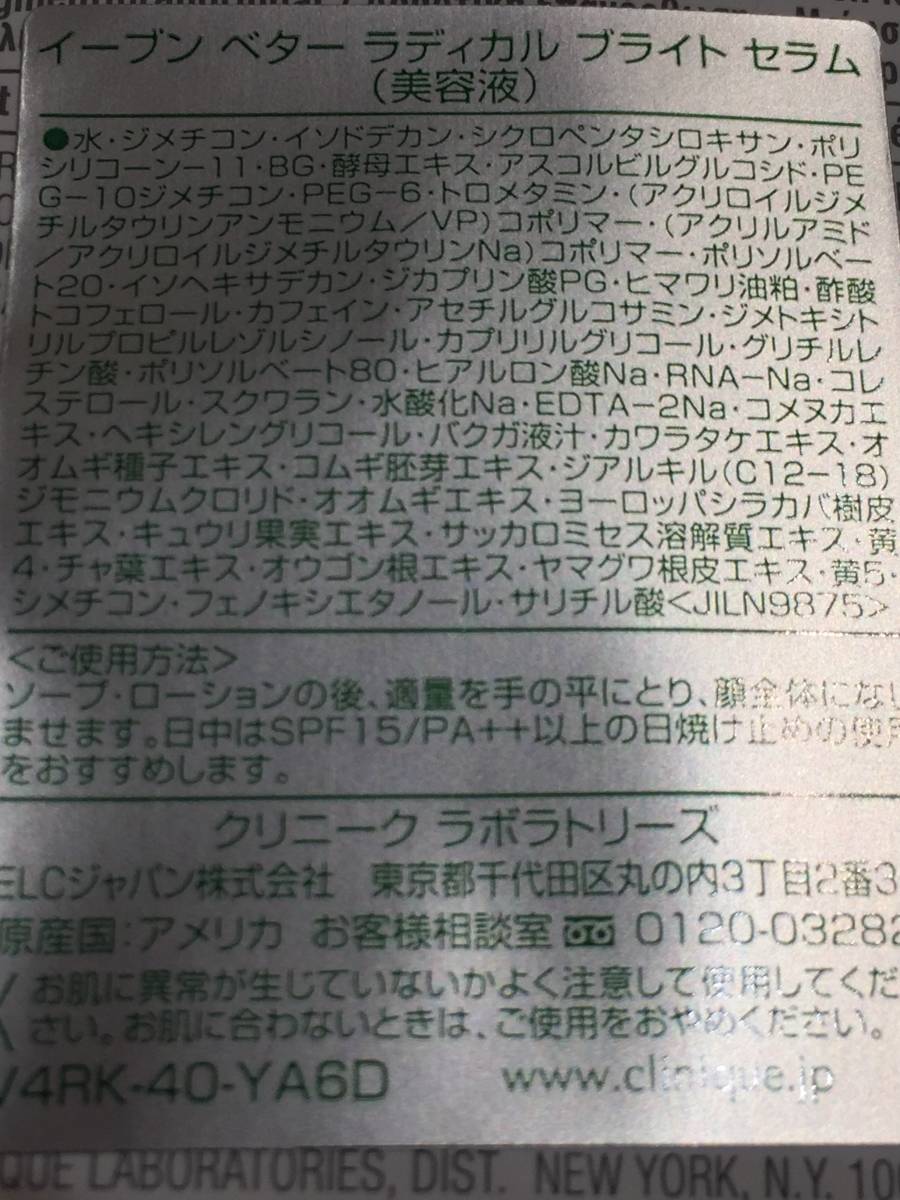 イーブン ベター ラディカル ブライト セラム
（美容液）
●水・ジメチコン・イソドデカン・シクロペンタシロキサン・ポリ
シリコーン−11・BG・酵母エキス・アスコルビルグルコシド・PE
G−10ジメチコン・PEG−6・トロメタミン・(アクリロイルジメ
チルタウリンアンモニウム／VP)コポリマー・(アクリルアミド
／アクリロイルジメチルタウリンNa)コポリマー・ポリソルベー
ト20・イソヘキサデカン・ジカプリン酸PG・ヒマワリ油粕・酢酸
トコフェロール・カフェイン・アセチルグルコサミン・ジメトキシト
リルプロピルレゾルシノール・カプリリルグリコール・グリチルレ
チン酸・ポリソルベート80・ヒアルロン酸Na・RNA−Na・コレ
ステロール・スクワラン・水酸化Na・EDTA−2Na・コメヌカエ
キス・ヘキシレングリコール・バクガ液汁・カワラタケエキス・オ
オムギ種子エキス・コムギ胚芽エキス・ジアルキル(C12−18)
ジモニウムクロリド・オオムギエキス・ヨーロッパシラカバ樹皮
エキス・キュウリ果実エキス・サッカロミセス溶解質エキス・黄
4・チャ葉エキス・オウゴン根エキス・ヤマグワ根皮エキス・黄5・
シメチコン・フェノキシエタノール・サリチル酸<JILN9875>
<ご使用方法>
ソープ・ローションの後、適量を手の平にとり、顔全体になじ
ませます。日中はSPF15/PA++以上の日焼け止めの使用
をおすすめします。
クリニーク ラボラトリーズ
ELCジャパン株式会社 東京都千代田区丸の内3丁目2番3
原産国：アメリカ お客様相談室 0120-03282
お肌に異常が生じていないかよく注意して使用してくだ
さい。お肌に合わないときは、ご使用をおやめください。
V4RK-40-YA6D www.clinique.jp
QUE LABORATORIES, DIST. NEW YORK, N.Y. 100